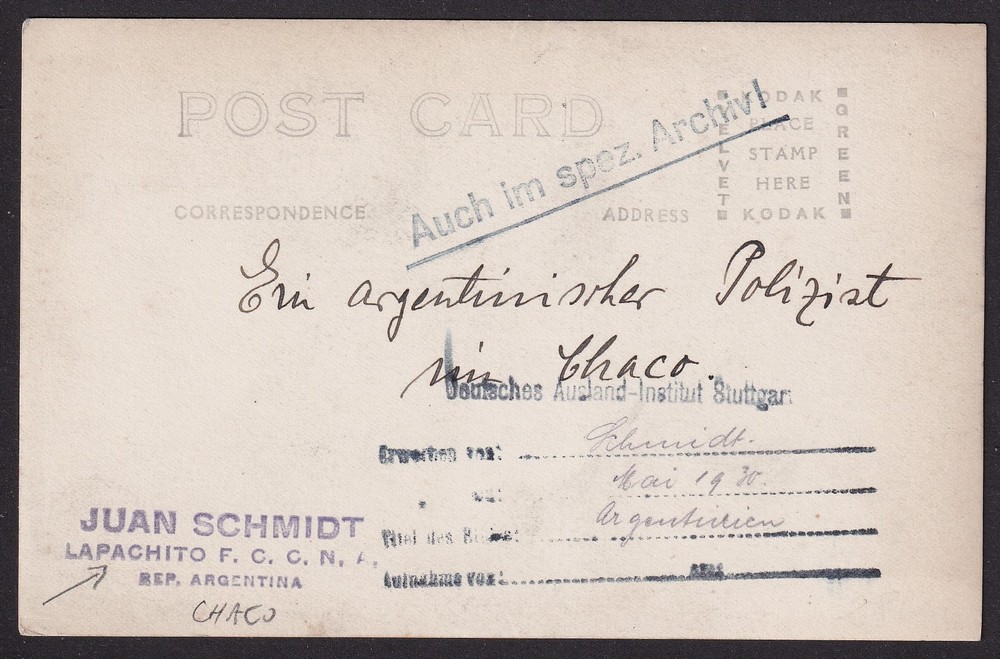 POST CARD
Auch im spez. Archiv!
VELVET
KODAK
PLACE
STAMP
HERE
KODAK
GREEN
CORRESPONDENCE
ADDRESS
Ein argentinischer Polizist
im Chaco.
Deutsches Ausland-Institut Stuttgart
Erworben von: Schmidt.
am: Mai 1930.
Titel des Bildes: Argentinien
Aufnahme von:
JUAN SCHMIDT
LAPACHITO F. C. C. N. A.
REP. ARGENTINA
CHACO